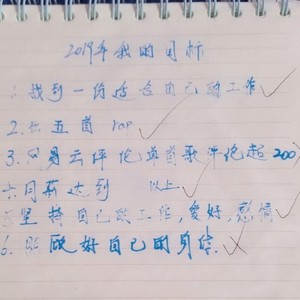 2019年我的目标
1.找到一份适合自己的工作
2.出五首rap
3.网易云评论单首歌评论超200
六月薪达到 以上
坚持自己的工作,爱好,感情
6.照顾好自己的身体